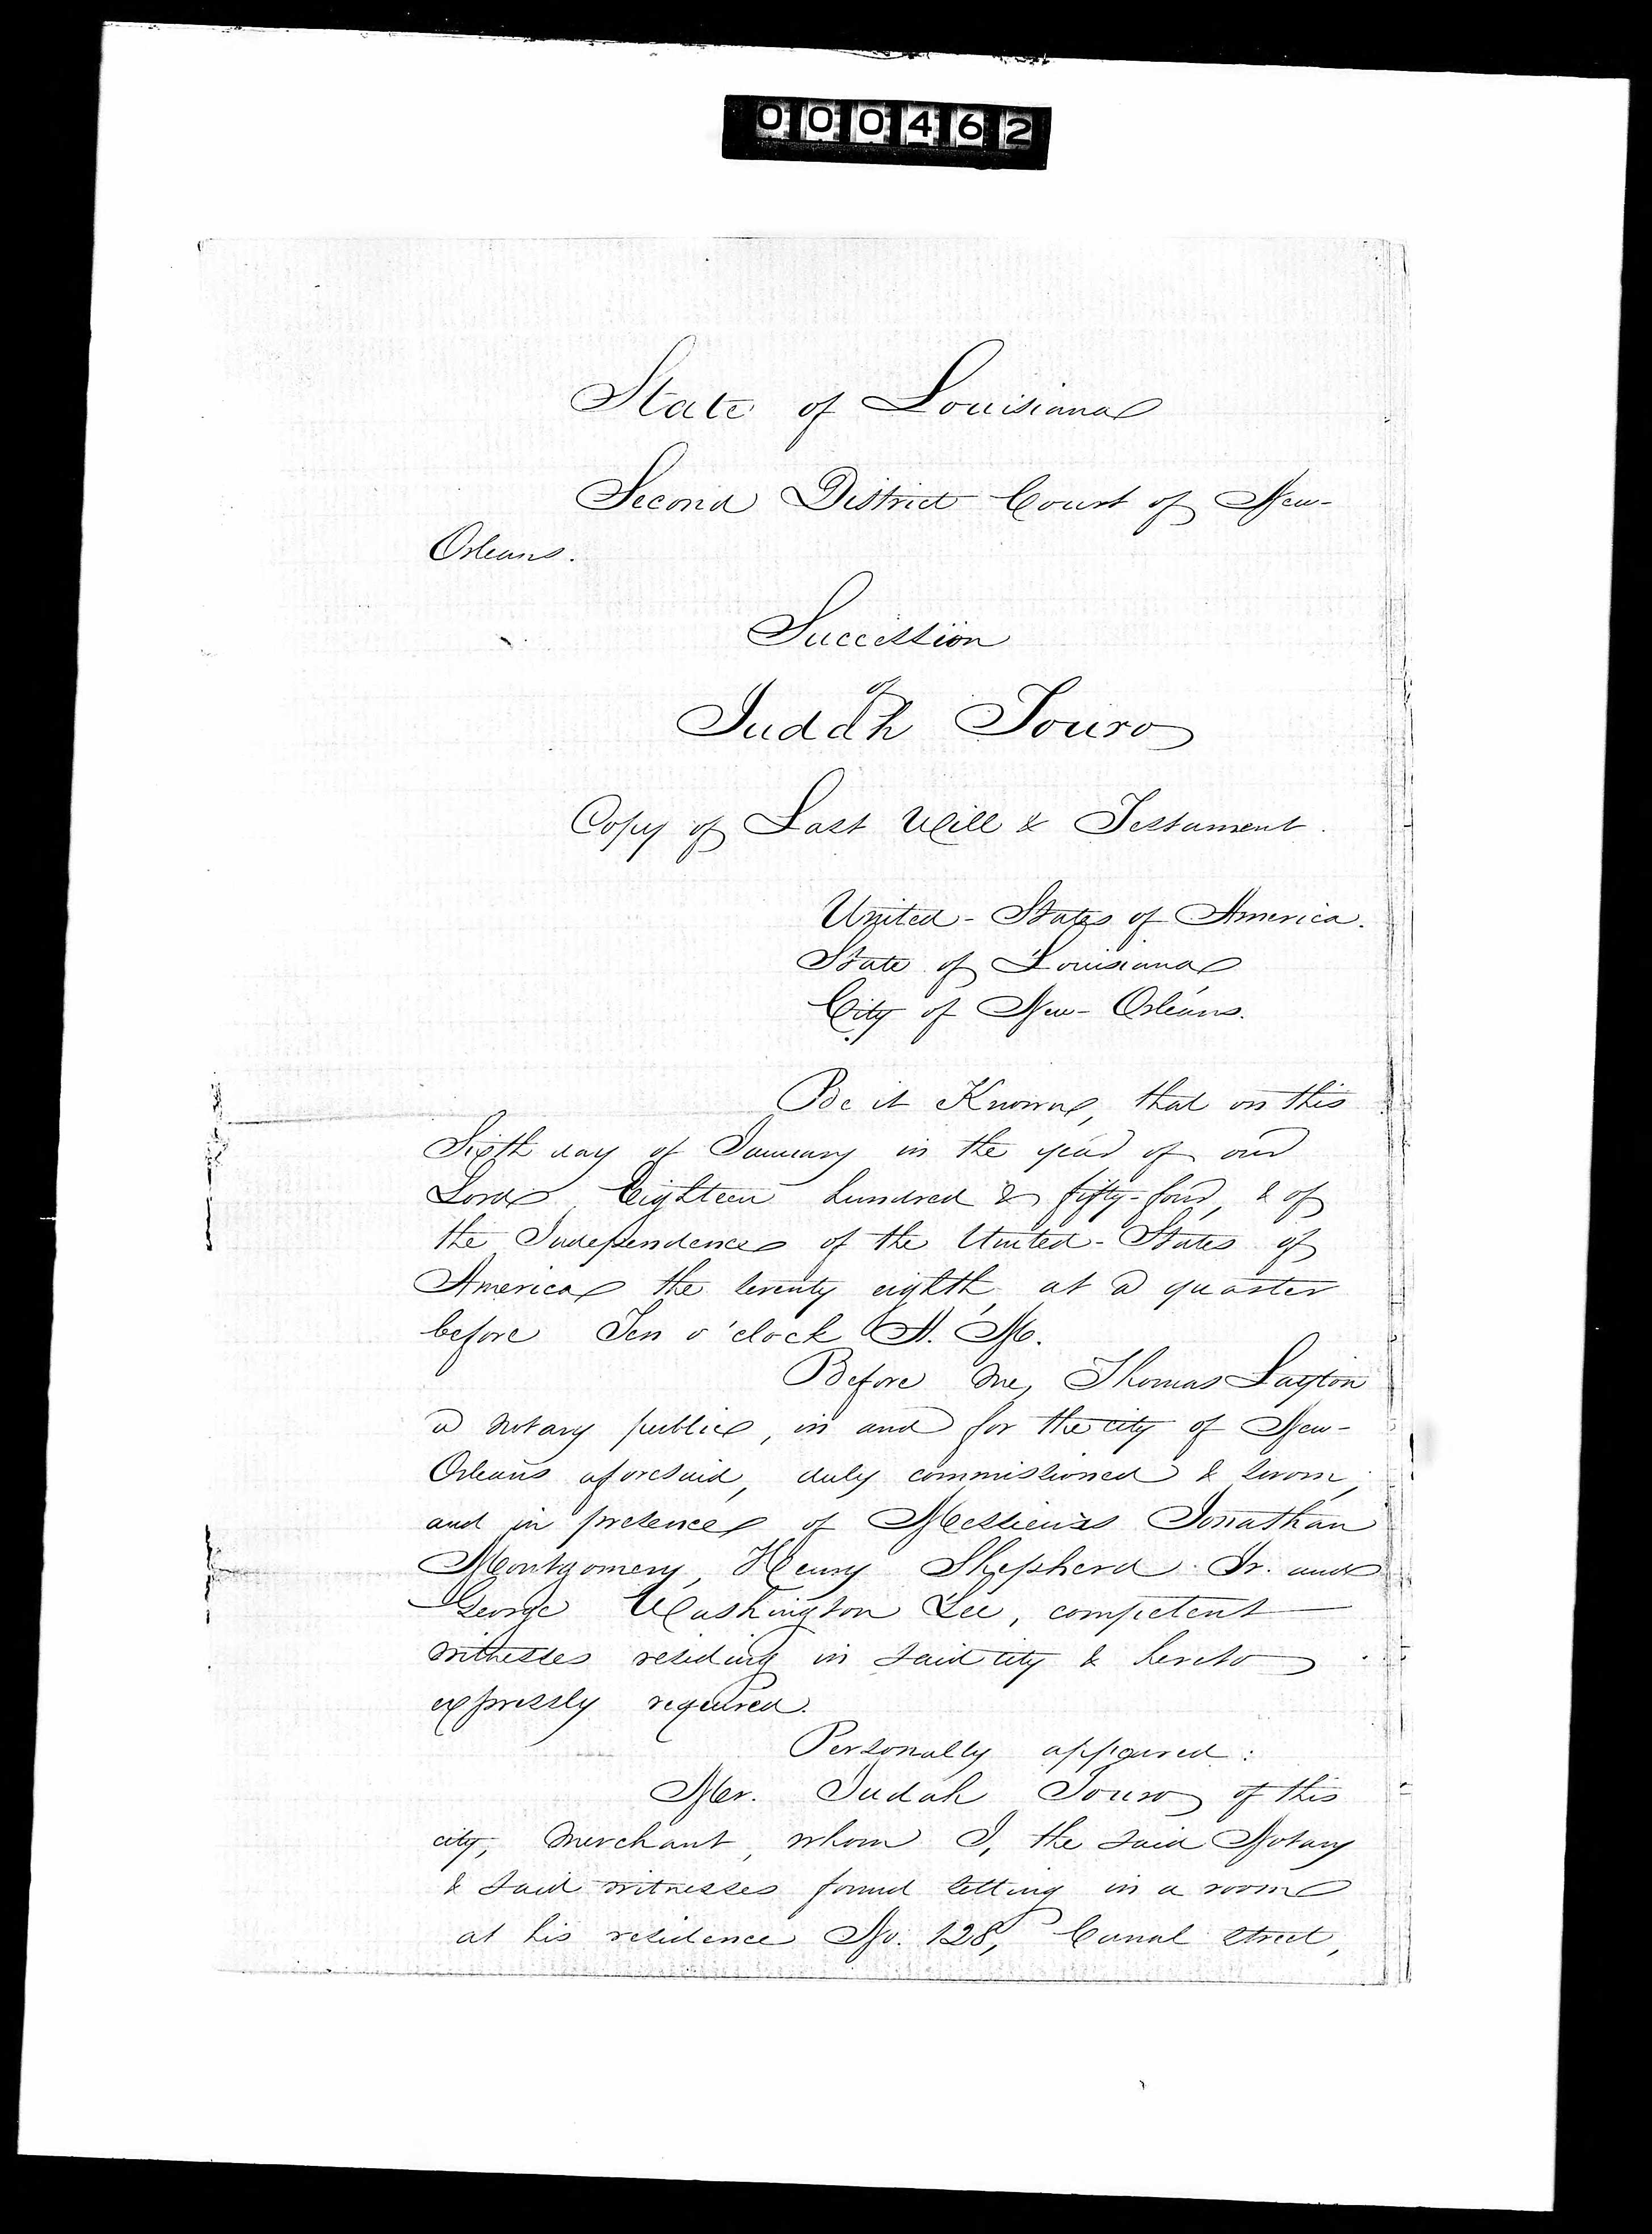 000462
State of Louisiana
Second District Court of New-
Orleans.
Succession
of
Judah Touro
Copy of Last Will & Testament.
United-States of America.
State of Louisiana
City of New-Orleans.
Be it Known, that on this
Sixth day of January in the year of our
Lord Eighteen hundred & fifty-four, & of
the Independence of the United-States of
America the seventy eighth, at a quarter
before Ten o'clock A. M.
Before me, Thomas Layton
a notary public, in and for the city of New-
Orleans aforesaid, duly commissioned & sworn,
and in presence of Messieurs Jonathan
Montgomery, Henry Shepherd Jr. and
George Washington Lee, competent
witnesses residing in said city & hereto
expressly required.
Personally appeared:
Mr. Judah Touro of this
city, Merchant, whom I, the said Notary
& said witnesses found setting in a room
at his residence No. 128, Canal Street,